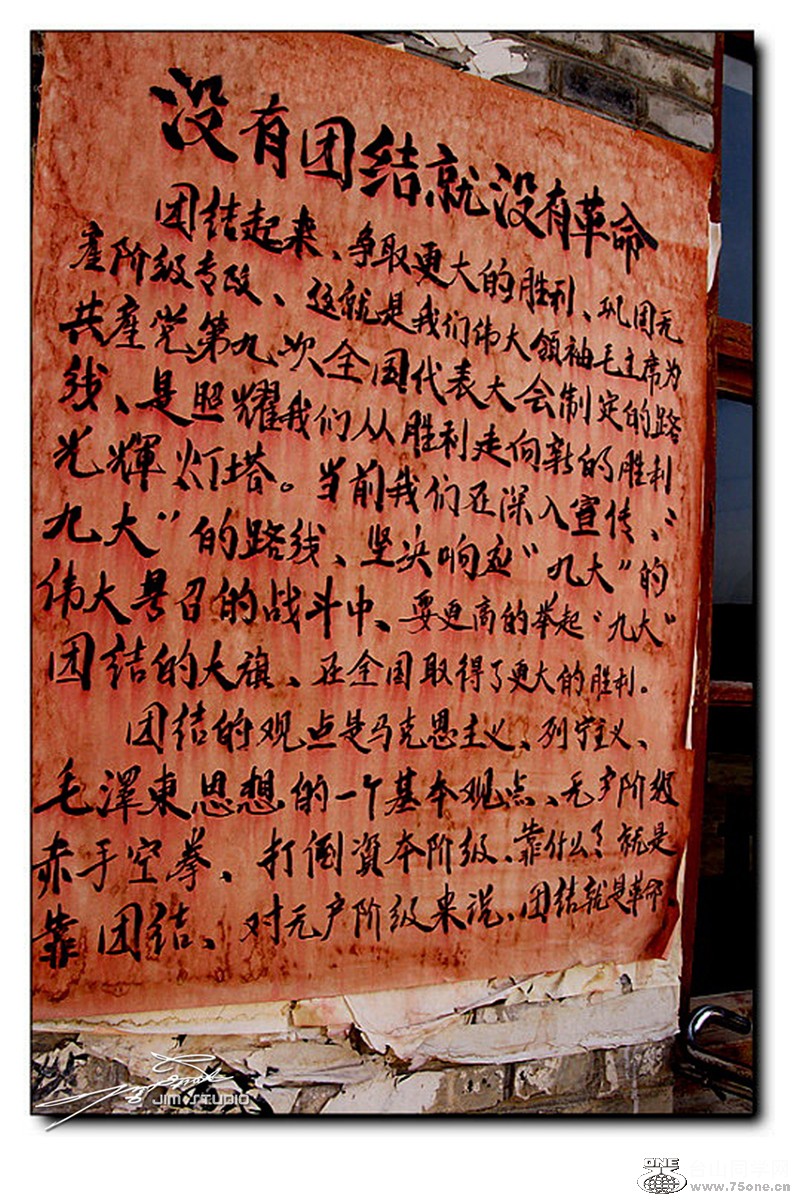 没有团结就没有革命
团结起来、争取更大的胜利、巩固无
产阶级专政、这就是我们伟大领袖毛主席为
共產党第九次全国代表大会制定的路
线、是照耀我们从胜利走向新的胜利
光輝灯塔。当前我们在深入宣传、“
九大”的路线、坚决响应“九大”的
伟大号召的战斗中、要更高的举起“九大”
团结的大旗、在全国取得了更大的胜利。
团结的观点是马克思主义、列宁主义、
毛澤東思想的一个基本观点、无产阶级
赤手空拳、打倒資本阶级、靠什么？就是
靠团结、对无产阶级来说、团结就是革命、
JIM·STUDIO
ONE
www.75one.cn